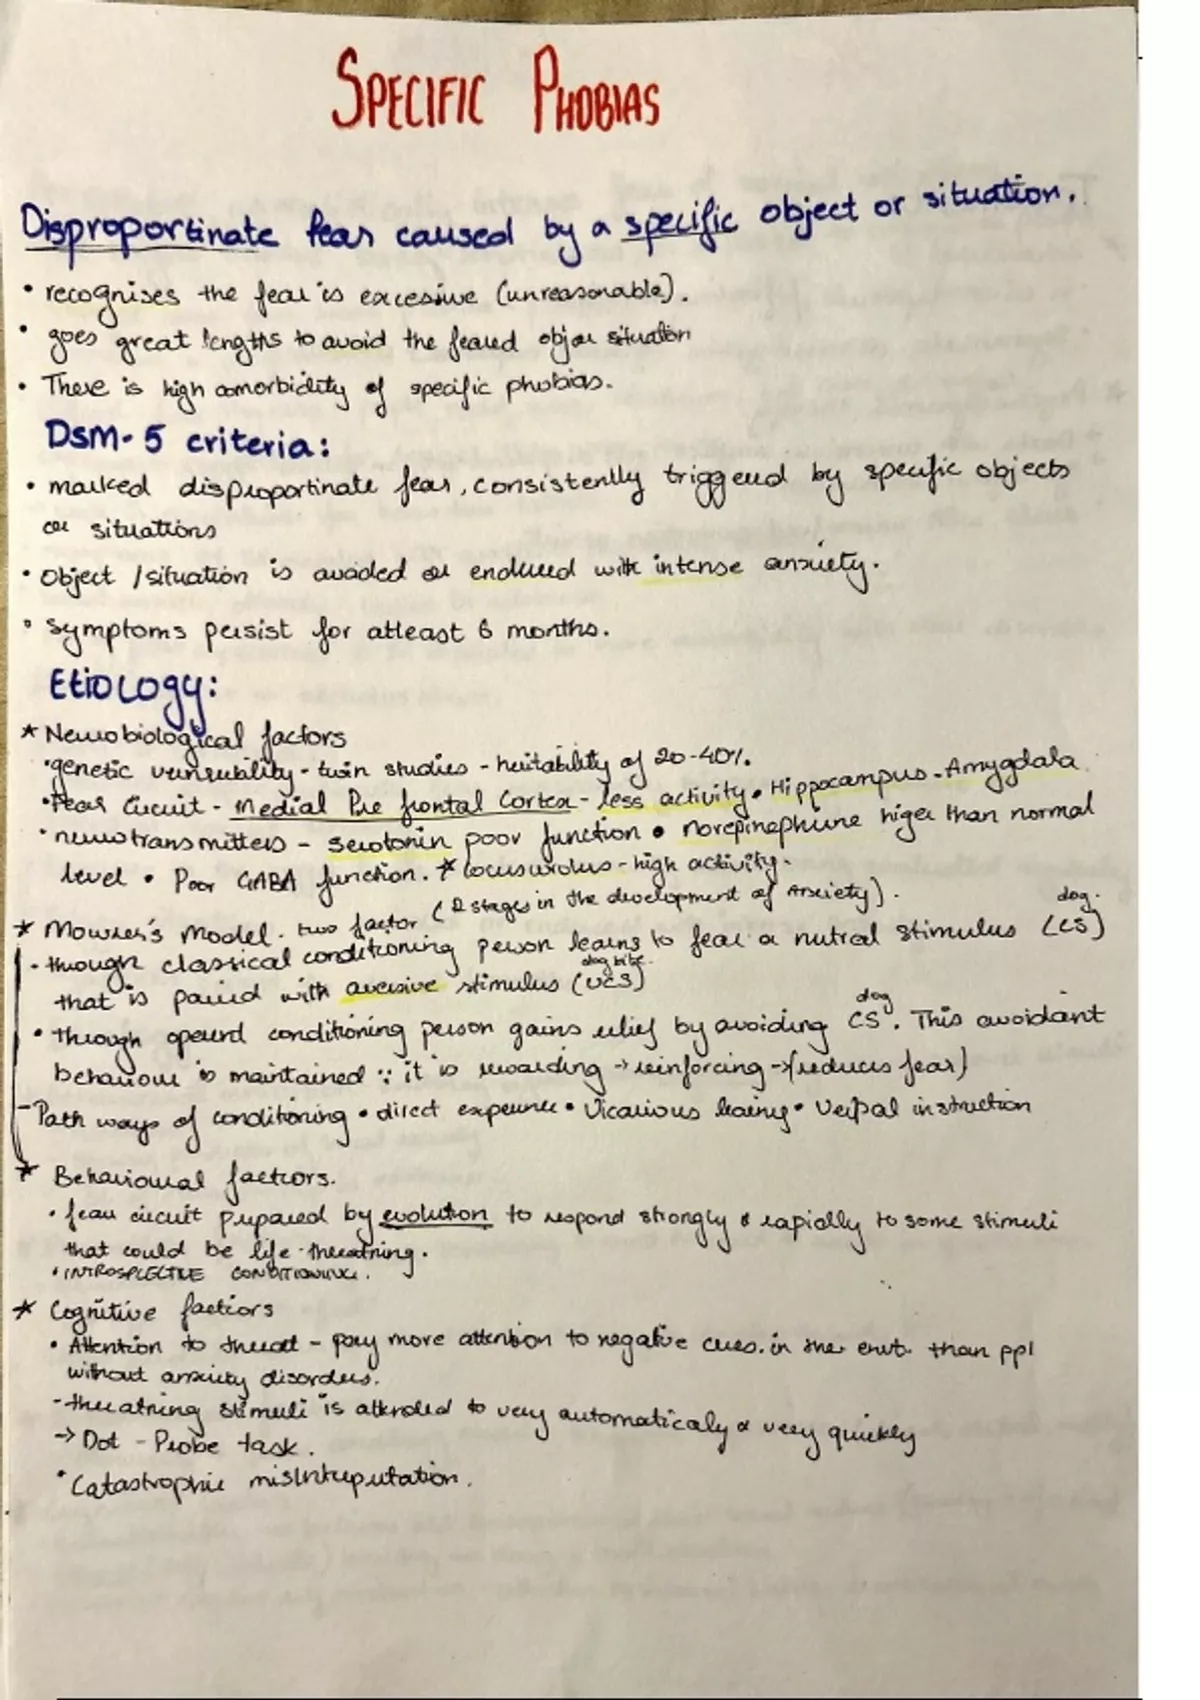 SPECIFIC PHOBIAS
Disproportinate fear caused by a specific object or situation.
• recognises the fear is excessive (unreasonable).
• goes great lengths to avoid the feared obj or situation
• There is high comorbidity of specific phobias.
Dsm-5 criteria:
• marked disproportinate fear, consistently triggered by specific objects
or situations
• Object / situation is avoided or endured with intense anxiety.
• Symptoms persist for atleast 6 months.
Etiology:
* Neurobiological factors
• genetic vulnerability - twin studies - heritability of 20-40%.
• Fear Circuit - Medial Pre frontal Cortex - less activity • Hippocampus - Amygdala
• neurotransmitters - serotonin poor function • norepinephrine higer than normal
level • Poor GABA function. * - high activity.
* Mowrer's Model. two factor (2 stages in the development of Anxiety).
dog.
• through classical conditioning person learns to fear a nutral stimulus (CS)
dog bite.
that is paired with aversive stimulus (UCS)
dog
• through conditioning person gains relief by avoiding CS. This avoidant
behaviour is maintained ∵ it is rewarding → reinforcing → (reduces fear)
- Path ways of conditioning • direct experience • Vicarious • Verbal instruction
* Behavioural factors.
• fear circuit prepared by evolution to respond strongly & rapidly to some stimuli
that could be life-threatning.
• CONDITIONING.
* Cognitive factors
• Attention to threat - pay more attention to negative cues. in the envt. than ppl
without anxiety disorders.
- threatning stimuli is attended to very automaticaly & very quickly
→ Dot - Probe task.
• Catastrophic misinterputation.